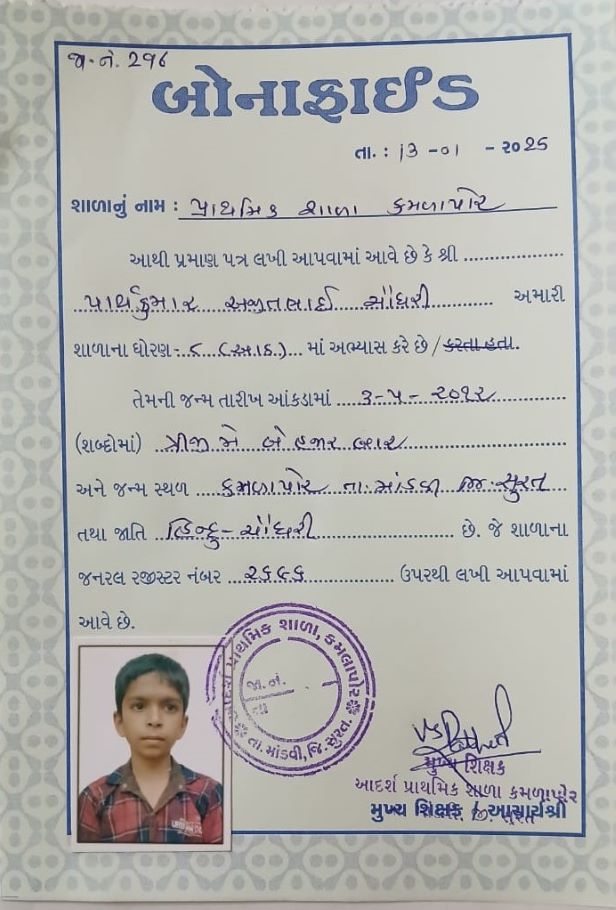 જા. નં. 296
બોનાફાઈડ
તા. : 13 - 01 - ૨૦25
શાળાનું નામ : પ્રાથમિક શાળા કમળાપોર
આથી પ્રમાણ પત્ર લખી આપવામાં આવે છે કે શ્રી
પાર્થકુમાર અજીતભાઈ ચૌધરી અમારી
શાળાના ધોરણ :- ૮ (આઠ) માં અભ્યાસ કરે છે / કરતા હતા.
તેમની જન્મ તારીખ આંકડામાં ૩-૫-૨૦૧૨
(શબ્દોમાં) ત્રીજી મે બે હજાર બાર
અને જન્મ સ્થળ કમળાપોર તા. માંડવી જિ. સુરત
તથા જાતિ હિન્દુ - ચૌધરી છે. જે શાળાના
જનરલ રજીસ્ટર નંબર ઉપરથી લખી આપવામાં
આવે છે.
આદર્શ પ્રાથમિક શાળા, કમલાપોર
તા. માંડવી, જિ. સુરત.
જા. નં.
તા
મુખ્ય શિક્ષક
આદર્શ પ્રાથમિક શાળા કમળાપોર
મુખ્ય શિક્ષક / આચાર્યશ્રી